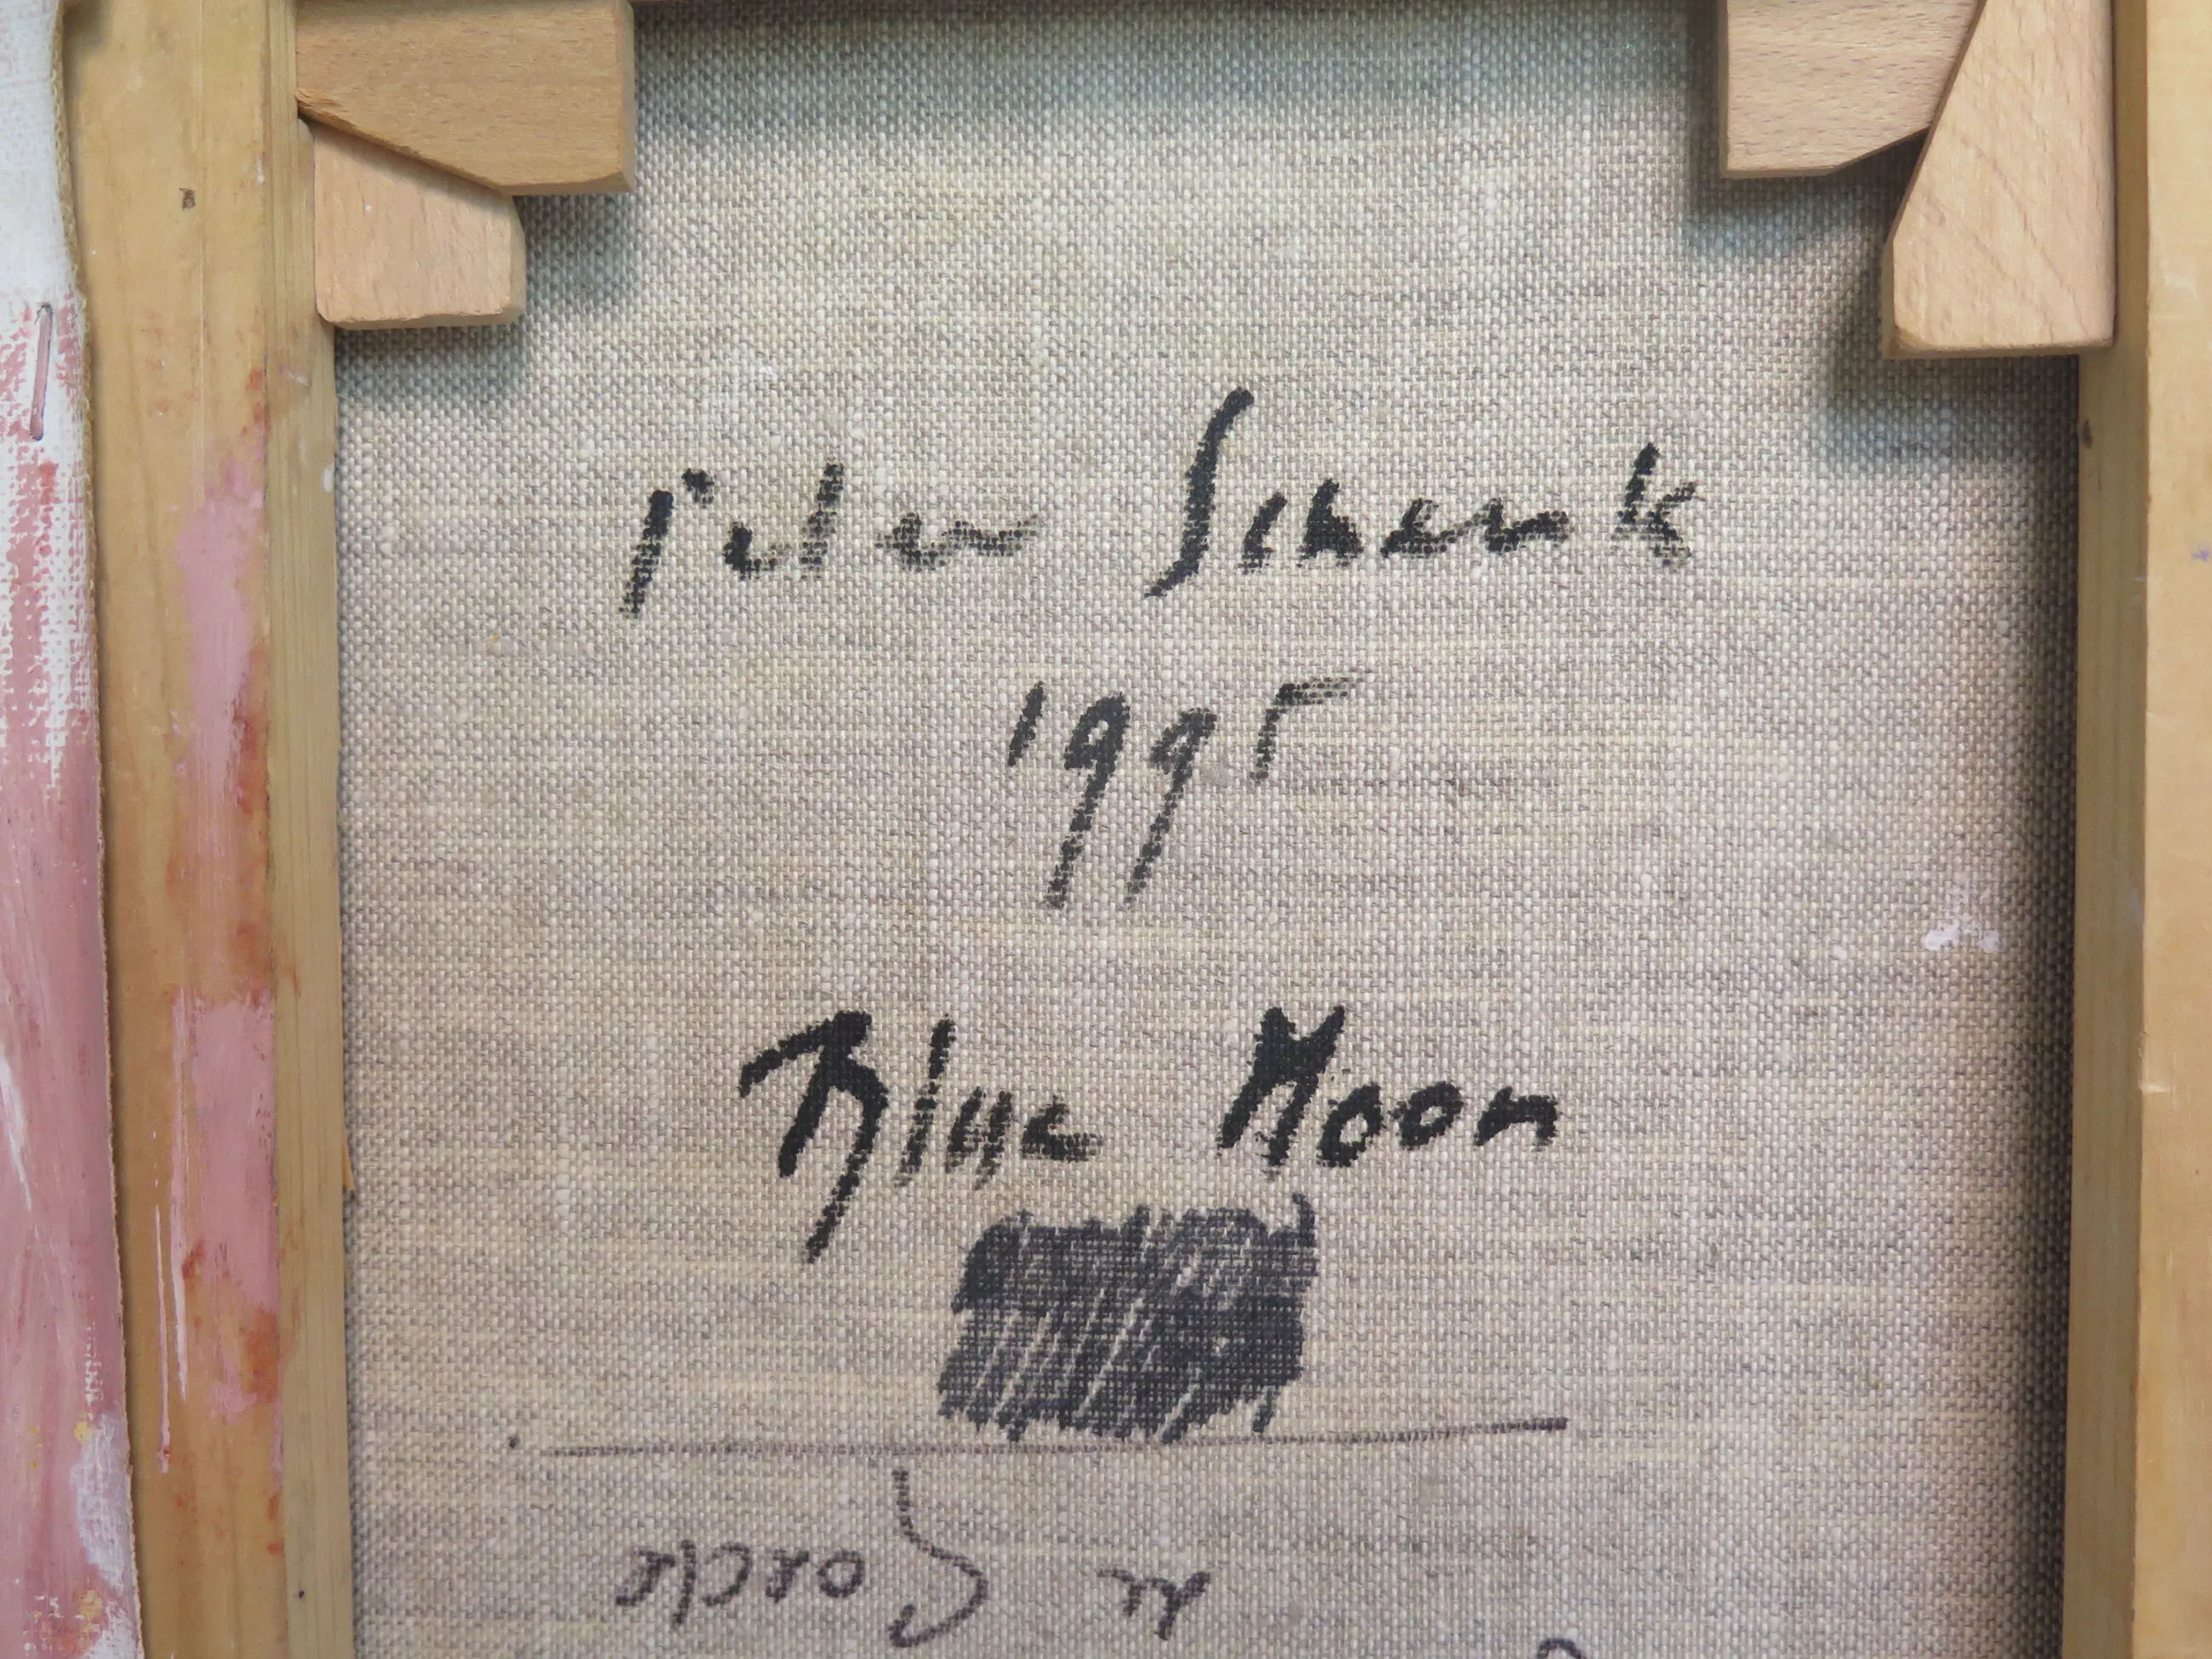 Peter Schenk
1995
Blue Moon